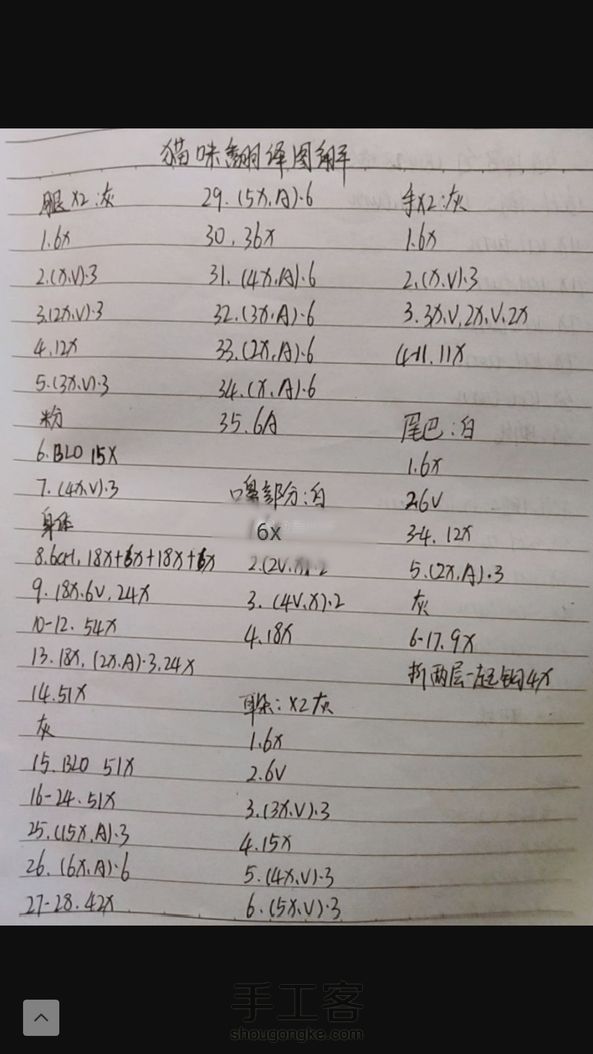 猫咪翻译图解
腿x2:灰
1.6x
2.(x.v)·3
3.(2x.v)·3
4.12x
5.(3x.v)·3
粉
6.BLO 15x
7.(4x.v)·3
身体
8.6CH,18x+6x+18x+6x
9.18x.6v,24x
10-12.54x
13.18x,(2x.A)·3.24x
14.51x
灰
15.BLO 51x
16-24.51x
25.(15x.A)·3
26.(6x.A)·6
27-28.42x
29.(5x.A)·6
30.36x
31.(4x.A)·6
32.(3x.A)·6
33.(2x.A)·6
34.(x.A)·6
35.6A
嘴部分:白
6x
2.(2v.x).2
3.(4v.x)·2
4.18x
耳朵:x2灰
1.6x
2.6v
3.(3x.v)·3
4.15x
5.(4x.v)·3
6.(5x.v)·3
手x2:灰
1.6x
2.(x.v)·3
3.3x.v,2x.v.2x
4-11.11x
尾巴:白
1.6x
2.6v
3-4.12x
5.(2x.A)·3
灰
6-17.9x
折两层一起钩4x
手工客
shougongke.com